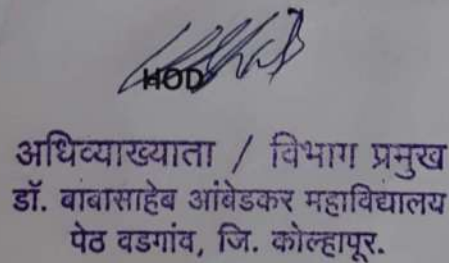 HOD
अधिव्याख्याता / विभाग प्रमुख
डॉ. बाबासाहेब आंबेडकर महाविद्यालय
पेठ वडगांव, जि. कोल्हापूर.